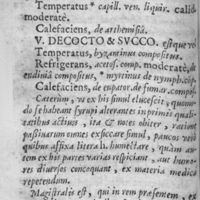 Temperatus * capill. ven. liquir. calid.
moderatè.
Calefaciens, de arthemisiâ.
V. DECOCTO & SVCCO. estque vo
Temperatus, byzantinus compositus.
Refrigerans, acetos. comp. moderatè, de
endiuiâ compositus, * myrtinus de nymph. comp
Calefaciens, de eupator. de fumar. compos.
Caterùm, vt ex his simul elucescit, quomo-
do se habeant syrupi alterantes in primas quali-
tatibus actiuis, ita & notes obiter, rationi
passiuarum omnes exsiccare simul, paucos verò
quibus affixa litera h. humectare, quùm aut
ex his partes varias respiciant, aut humo-
res diuersos concoquant, ex materia medica
repetendum.
Magistralis est, qui in rem præsentem, ex